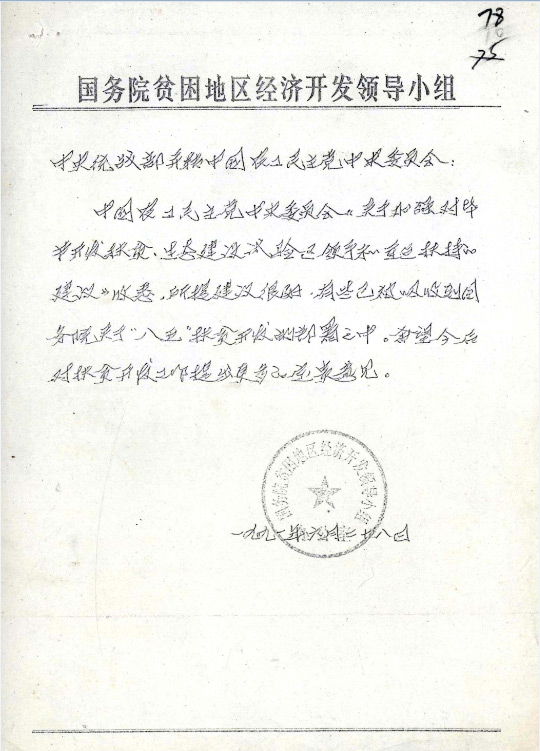 78
75
国务院贫困地区经济开发领导小组
中央统战部并转中国农工民主党中央委员会：
中国农工民主党中央委员会《关于加强对毕
节开发扶贫、生态建设试验区领导和重点扶持的
建议》收悉，所提建议很好，有些已被吸收到国
务院关于"八五"扶贫开发的部署之中。希望今后
对扶贫开发工作提出更多的宝贵意见。
国务院贫困地区经济开发领导小组
一九九一年六月二十八日